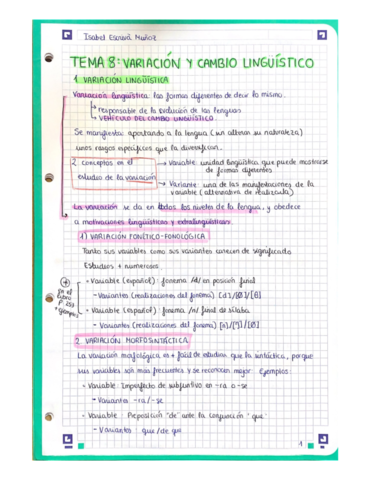 Isabel Escrivà Muñoz
TEMA 8: VARIACIÓN Y CAMBIO LINGÜÍSTICO
1. VARIACIÓN LINGÜÍSTICA
Variación lingüística: las formas diferentes de decir lo mismo.
↳ responsable de la evolución de las lenguas
↳ VEHÍCULO DEL CAMBIO LINGÜÍSTICO
Se manifiesta: aportando a la lengua (sin alterar su naturaleza)
unos rasgos específicos que la diversifican.
2 conceptos en el → Variable: unidad lingüística que puede mostrarse
de formas diferentes
estudio de la variación → Variante: una de las manifestaciones de la
variable (alternativa de realizarla)
La variación se da en todos los niveles de la lengua, y obedece
a motivaciones lingüísticas y extralingüísticas.
1) VARIACIÓN FONÉTICO-FONOLÓGICA
Tanto sus variables como sus variantes carecen de significado.
Estudios + numerosos
+ en el libro P. 253 + ejemplos
- Variable (español): fonema /d/ en posición final
- Variantes (realizaciones del fonema) [d]/[Ø]/[θ]
- Variable (español): fonema /n/ final de sílaba
- Variantes (realizaciones del fonema) [n]/[ŋ]/[Ø]
2. VARIACIÓN MORFOSINTÁCTICA
La variación morfológica es + fácil de estudiar que la sintáctica, porque
sus variables son más frecuentes y se reconocen mejor. Ejemplos:
- Variable: Imperfecto de subjuntivo en -ra o -se
- Variantes -ra/-se
- Variable: Preposición "de" ante la conjunción "que"
- Variantes: que/de que
1